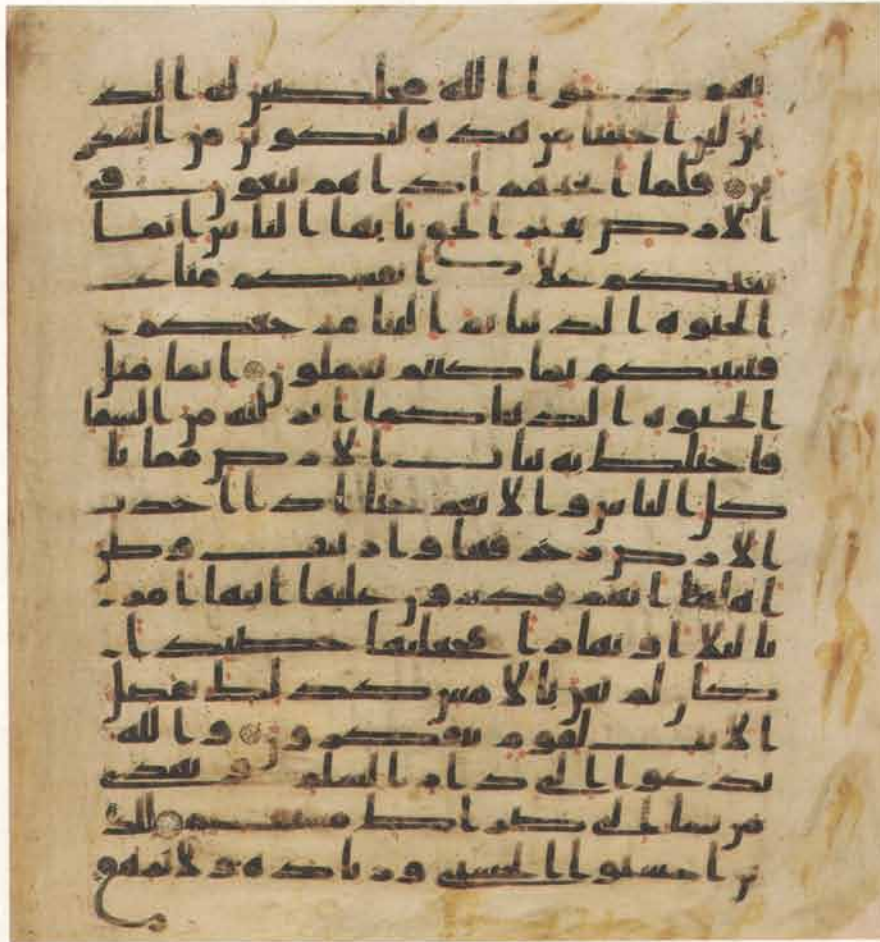 بهم دعوا الله مخلصين له الد
ين لئن انجيتنا من هذه لنكونن من الشكر
ين فلما انجيهم اذا هم يبغون في
الارض بغير الحق يايها الناس انما
بغيكم علا انفسكم متاع
الحيوة الدنيا ثم الينا مرجعكم
فننبئكم بما كنتم تعملون انما مثل
الحيوة الدنيا كما انزلنه من السما
فاختلط به نبات الارض مما يا
كل الناس والانعم حتا اذا اخذت
الارض زخرفها وازينت وظن
اهلها انهم قدرون عليها اتيها امر
نا ليلا او نهارا فجعلنها حصيدا
كان لم تغن بالامس كذلك نفصل
الايت لقوم يتفكرون والله
يدعوا الى دار السلم ويهدي
من يشا الى صراط مستقيم للذ
ين احسنوا الحسنى وزيادة ولا يرهق